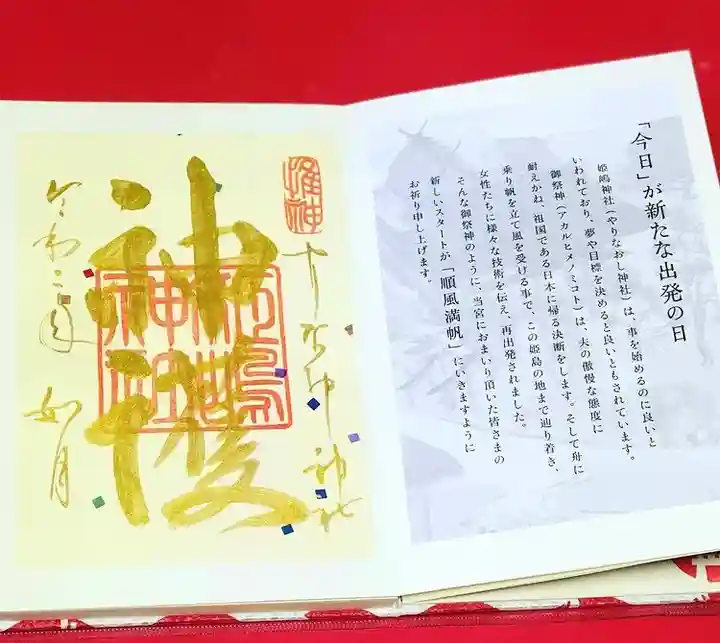 「今日」が新たな出発の日
姫嶋神社(やりなおし神社)は、事を始めるのに良いと
いわれており、夢や目標を決めると良いともされています。
御祭神(アカルヒメノミコト)は、夫の傲慢な態度に
耐えかね、祖国である日本に帰る決断をします。そして舟に
乗り帆を立て風を受ける事で、この姫島の地まで辿り着き、
女性たちに様々な技術を伝え、再出発されました。
そんな御祭神のように、当宮におまいり頂いた皆さまの
新しいスタートが「順風満帆」にいきますように
お祈り申し上げます。
神社
神
令和二年 如月